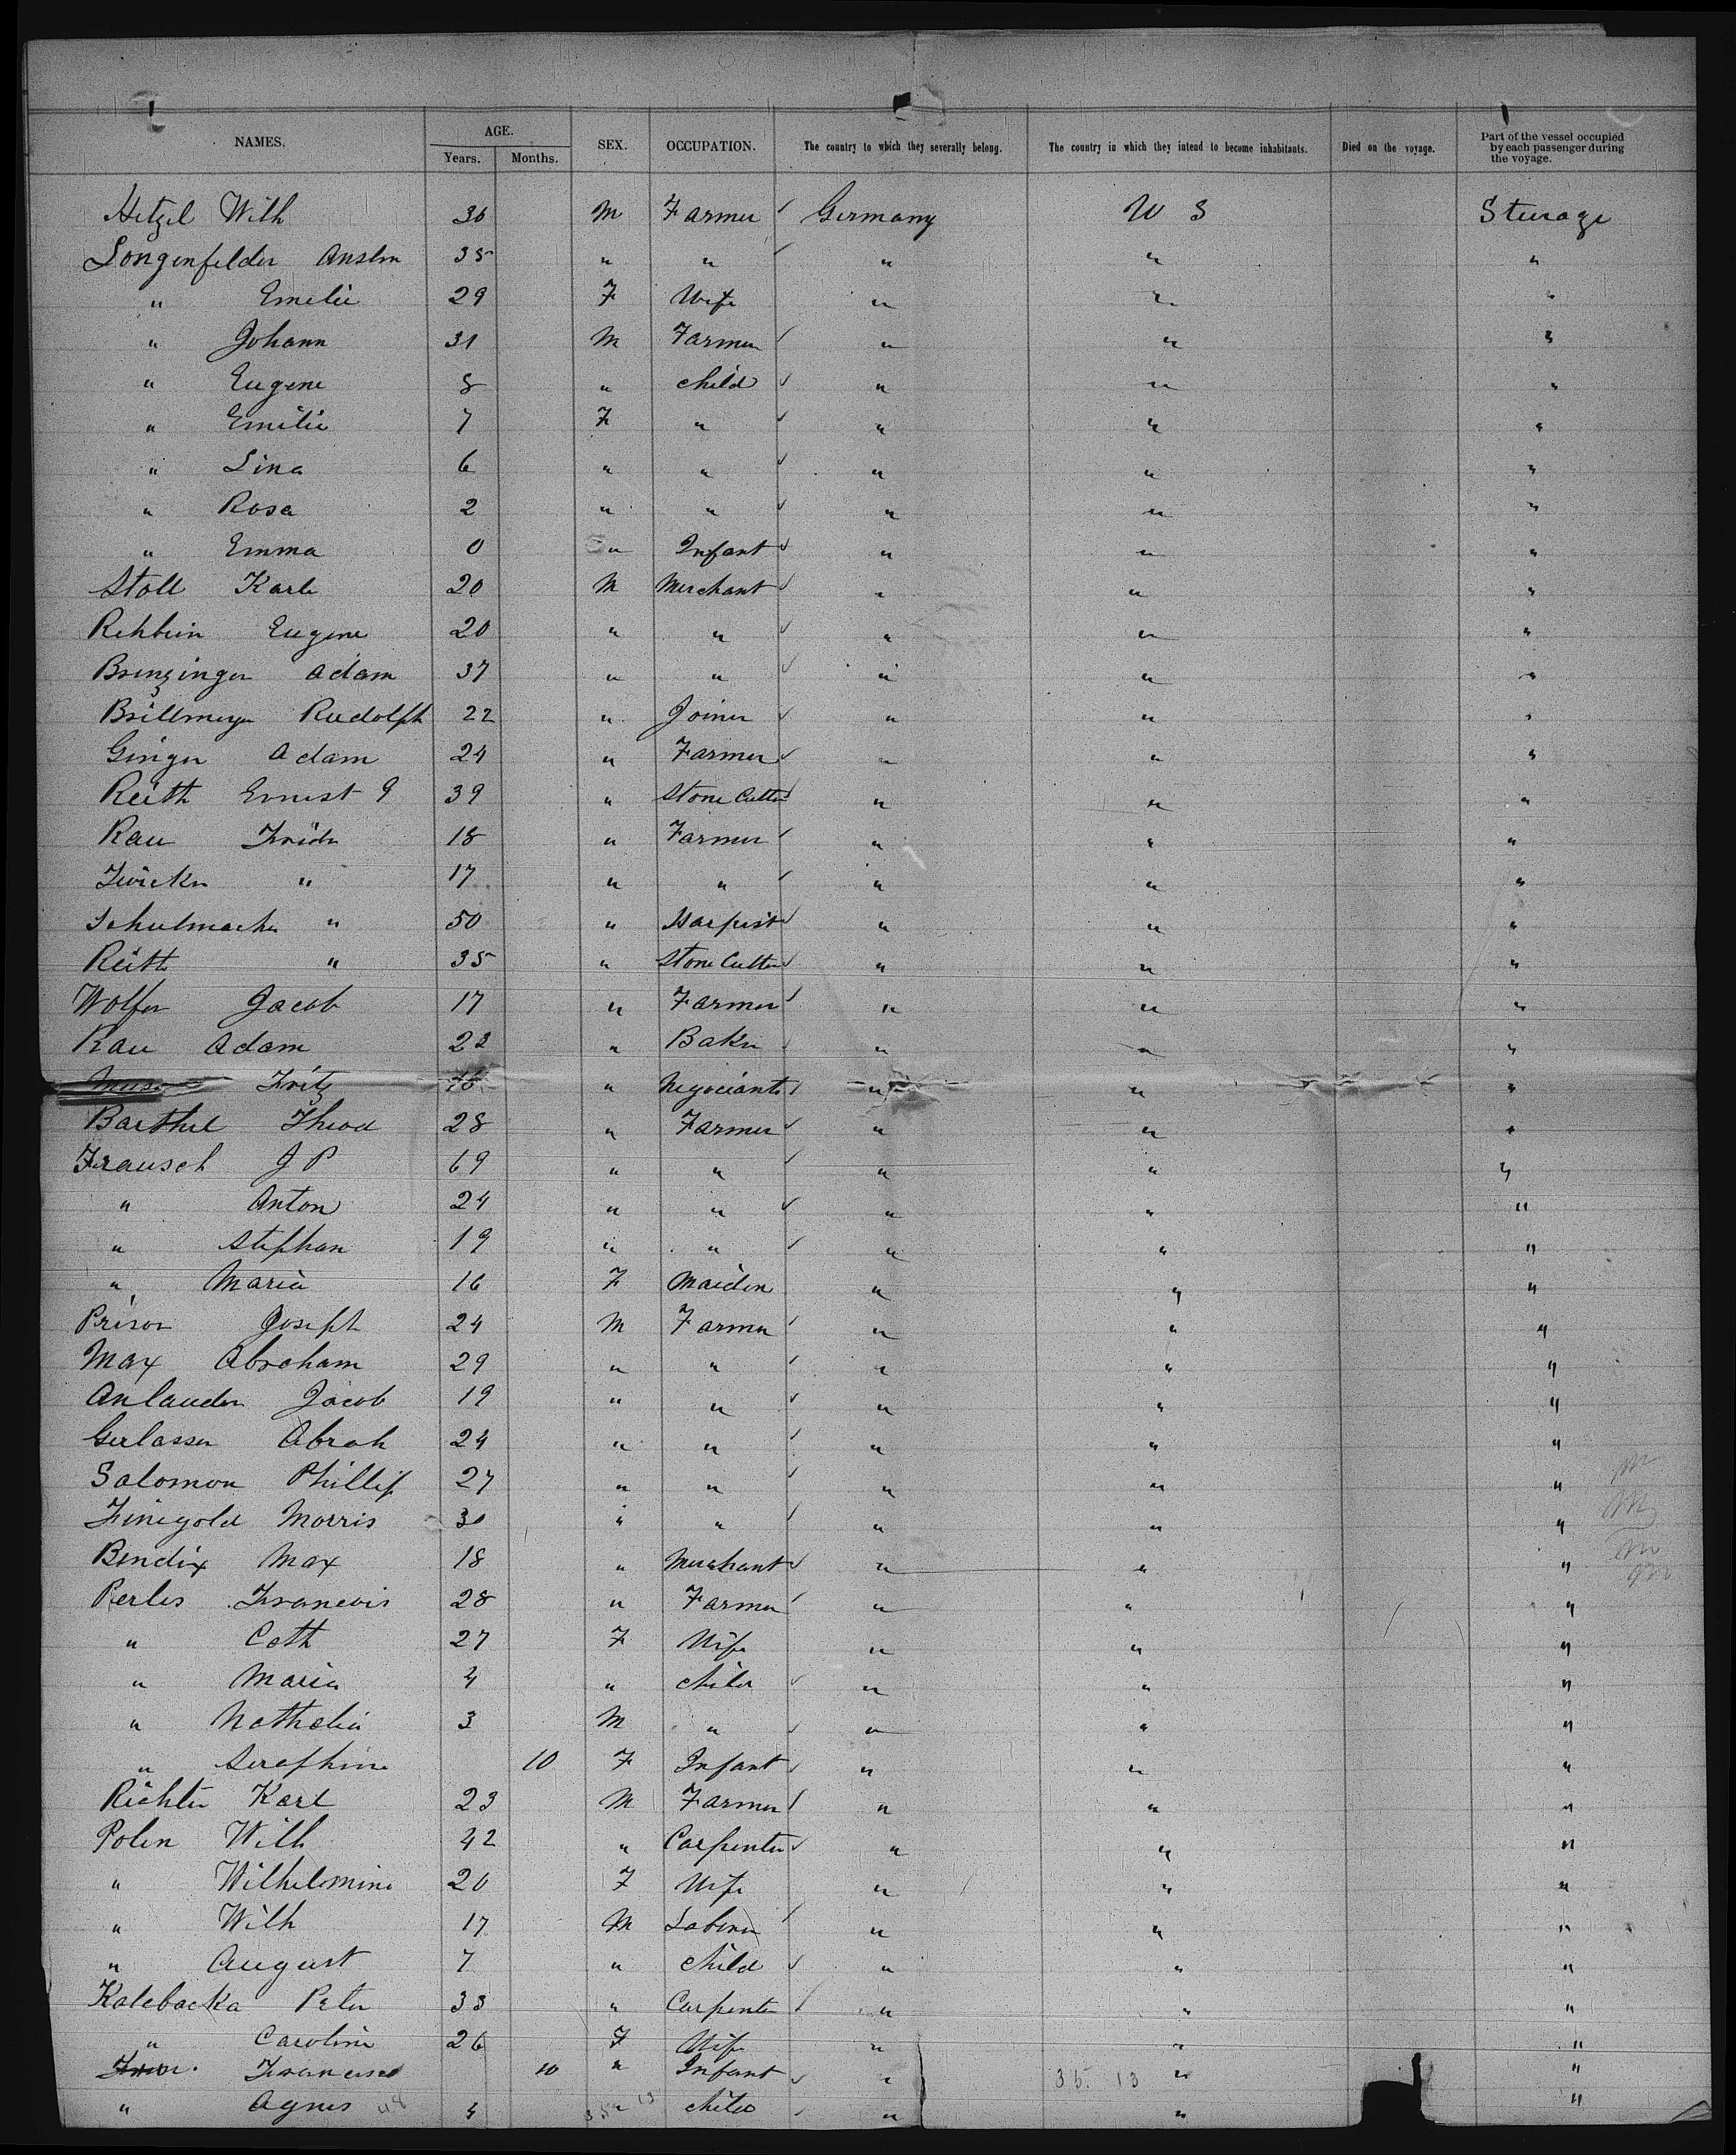 NAMES. AGE. SEX. OCCUPATION. The country to which they severally belong. The country in which they intend to become inhabitants. Died on the voyage. Part of the vessel occupied by each passenger during the voyage.
Years. Months.
Hetzel Wilh 36 M Farmer Germany U S Steerage
Longenfelder Anslm 35 " " " " "
" Emelie 29 F Wife " " "
" Johann 31 M Farmer " " "
" Eugene 8 " child " " "
" Emilie 7 F " " " "
" Lina 6 " " " " "
" Rosa 2 " " " " "
" Emma 0 " Infant " " "
Stoll Karl 20 M Merchant " " "
Rehbein Eugene 20 " " " " "
Brenzinger Adam 37 " " " " "
Brillmeyer Rudolph 22 " Joiner " " "
Geiger Adam 24 " Farmer " " "
Reith Ernest G 39 " Stone Cutter " " "
Rau Fridr 18 " Farmer " " "
Zwicker " 17 " " " " "
Schulmacher " 50 " Harpist " " "
Reith " 35 " Stone Cutter " " "
Wolfer Jacob 17 " Farmer " " "
Rau Adam 23 " Baker " " "
Fritz " Negociant " " "
Barthel Theod 28 " Farmer " " "
Frausch J P 69 " " " " "
" Anton 24 " " " " "
" Stephan 19 " " " " "
" Maria 16 F Maiden " " "
Prison Joseph 24 M Farmer " " "
Max Abraham 29 " " " " "
Anlauder Jacob 19 " " " " "
Gerlasser Abrah 24 " " " " "
Salomon Phillip 27 " " " " "
Finegold Morris 30 " " " " "
Bendix Max 18 " Merchant " " "
Perles Francois 28 " Farmer " " "
" Cath 27 F Wife " " "
" Maria 4 " child " " "
" Nathalie 3 M " " " "
" Seraphine 10 F Infant " " "
Richter Karl 23 M Farmer " " "
Polen Wilh 42 " Carpenter " " "
" Wilhelmine 20 F Wife " " "
" Wilh 17 M Laborer " " "
" August 7 " child " " "
Kalebacka Peter 33 " Carpenter " " "
" Caroline 26 F Wife " " "
Francisc 10 " Infant " " "
" Agnes 4 " child " " "
35. 13